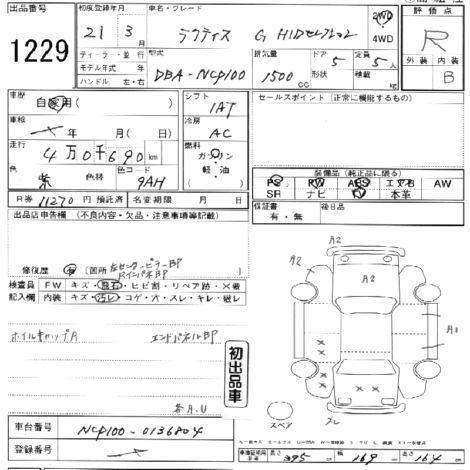 出品番号
1229
初度登録年月
21年 3月
ディーラー・並行
モデル年式 年
ハンドル 左・右
車名・グレード
ラクティス G HIDセレクション
2WD
4WD
型式
DBA-NCP100
排気量
1500cc
ドア
5
形状
定員
5人
積載 kg
評価点
R
外装 内装
B
車歴
自家用( )
車検
年 月(日)
走行
4万0千690km
色
紫
色替
カラーコード
9AH
シフト
IAT
冷房
AC
燃料
ガソリン
軽油
( )
R券 11270円 預託済
名変期限 月 日
セールスポイント(正常に機能するもの)
装備品(純正品に限る)
PS PW ABS エアB AW
SR ナビ TV 本革
保証書
有・無
後日品
出品店申告欄(不良内容・欠品・注意事項等記載)
修復歴 有 〔箇所
検査員記入欄
FW キズ・飛石・ヒビ割・リペア跡・×歯
内装 キズ・汚レ・コゲ・穴・スレ・キレ・破レ
ホイルキャップA
エンドパネル即
各A.U
初出品車
車台番号
NCP100-0136804
登録番号
A2
A2
A2
A1
スペア
スレ
長さ 395cm
幅 169cm
高さ 164cm